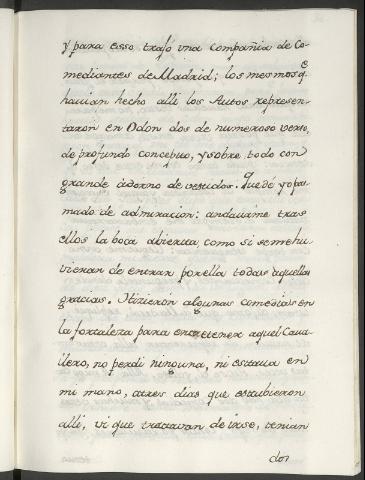 y para esso trajo una compañia de Co-
mediantes de Madrid; los mesmos q.e
havian hecho alli los Autos represen-
taron en Odon dos de numeroso verso,
de profundo concepto, y sobre todo con
grande adorno de vestidos. Quedé yo pas-
mado de admiracion: andavame tras
ellos la boca abierta, como si se me hu-
vieran de entrar por ella todas aquellas
gracias. Hizieron algunas comedias en
la fortaleza para entretener aquel Cava-
llero, no perdi ninguna, ni estava en
mi mano, a tres dias que estubieron
alli, vi que tratavan de irse, tenian
dos